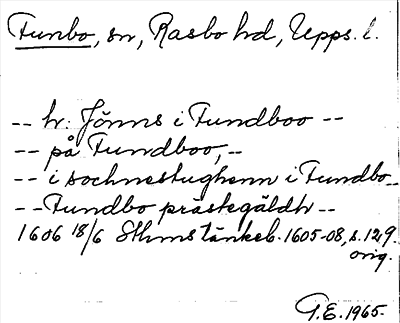 Funbo, sn, Rasbo hd, Upps. l.
-- hr: Jönns i Fundboo --
-- på Fundboo, --
-- i sochnestughenn i Fundbo --
-- Fundbo prästegäldh --
1606 18/6 Sthms tänkeb. 1605-08, s. 129.
orig.
G.E. 1965.